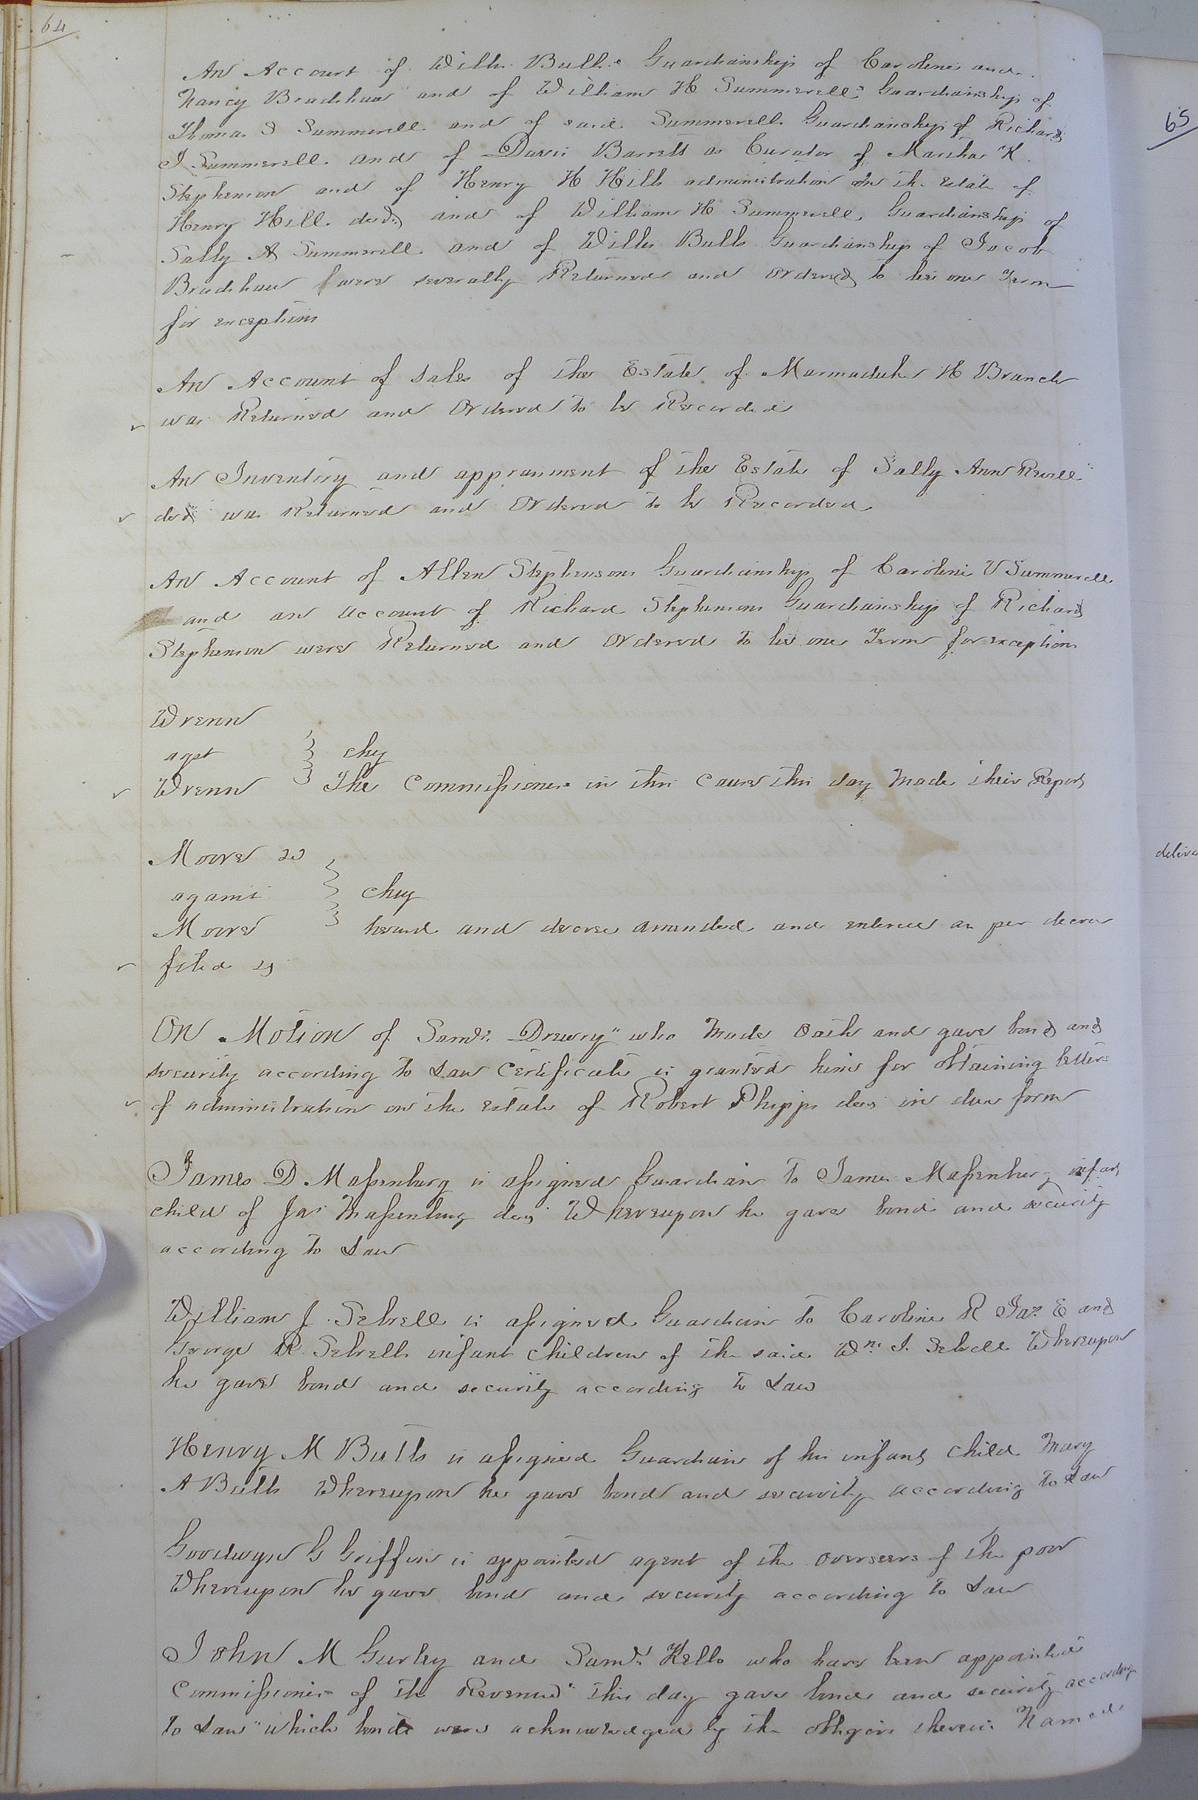 64
An Account of Willis Butts Guardianship of Caroline and
Nancy Bradshaw and of William H Summerell Guardianship of
Thomas S Summerell and of said Summerell Guardianship of Richard
J Summerell and of Davis Barrett as Curator of Martha
Stephenson and of Henry H Hill administration on the Estate of
Henry Hill decd and of William H Summerell Guardianship of
Sally A Summerell and of Willis Butts Guardianship of Jacob
Bradshaw were severally Returned and Ordered to lie one Term
for exceptions
An Account of sales of the Estate of Marmaduke H Branch
was Returned and Ordered to be Recorded
An Inventory and appraisment of the Estate of Sally Ann
decd was Returned and Ordered to be Recorded
An Account of Allen Stephensons Guardianship of Caroline V Summerell
and an account of Richard Stephensons Guardianship of Richard
Stephenson were Returned and Ordered to lie one Term for exceptions
Wrenn
agst } chy
Wrenn The Commissioners in this Cause this day made their Report
Moore
against } chy
Moore heard and decree amended and entered as per decree
filed
On Motion of Saml Drewry who made Oath and gave bond and
security according to Law Certificate is granted him for obtaining letters
of administration on the estate of Robert Phipps decd in due form
James D. Massenburg is assigned Guardian to James Massenburg infant
child of Jas Massenburg decd Whereupon he gave bond and security
according to Law
William J. Sebrell is assigned Guardian to Caroline R Jas E and
George R Sebrell infant children of the said Wm J. Sebrell Whereupon
he gave bond and security according to Law
Henry M Butts is assigned Guardian of his infant child Mary
A Butts Whereupon he gave bond and security according to Law
Goodwyn G Griffin is appointed agent of the overseers of the poor
Whereupon he gave bond and security according to Law
John M Gurley and Saml Kello who have been appointed
Commissioners of the Revenue this day gave bond and security according
to Law which bonds were acknowledged by the obligors therein Named
65